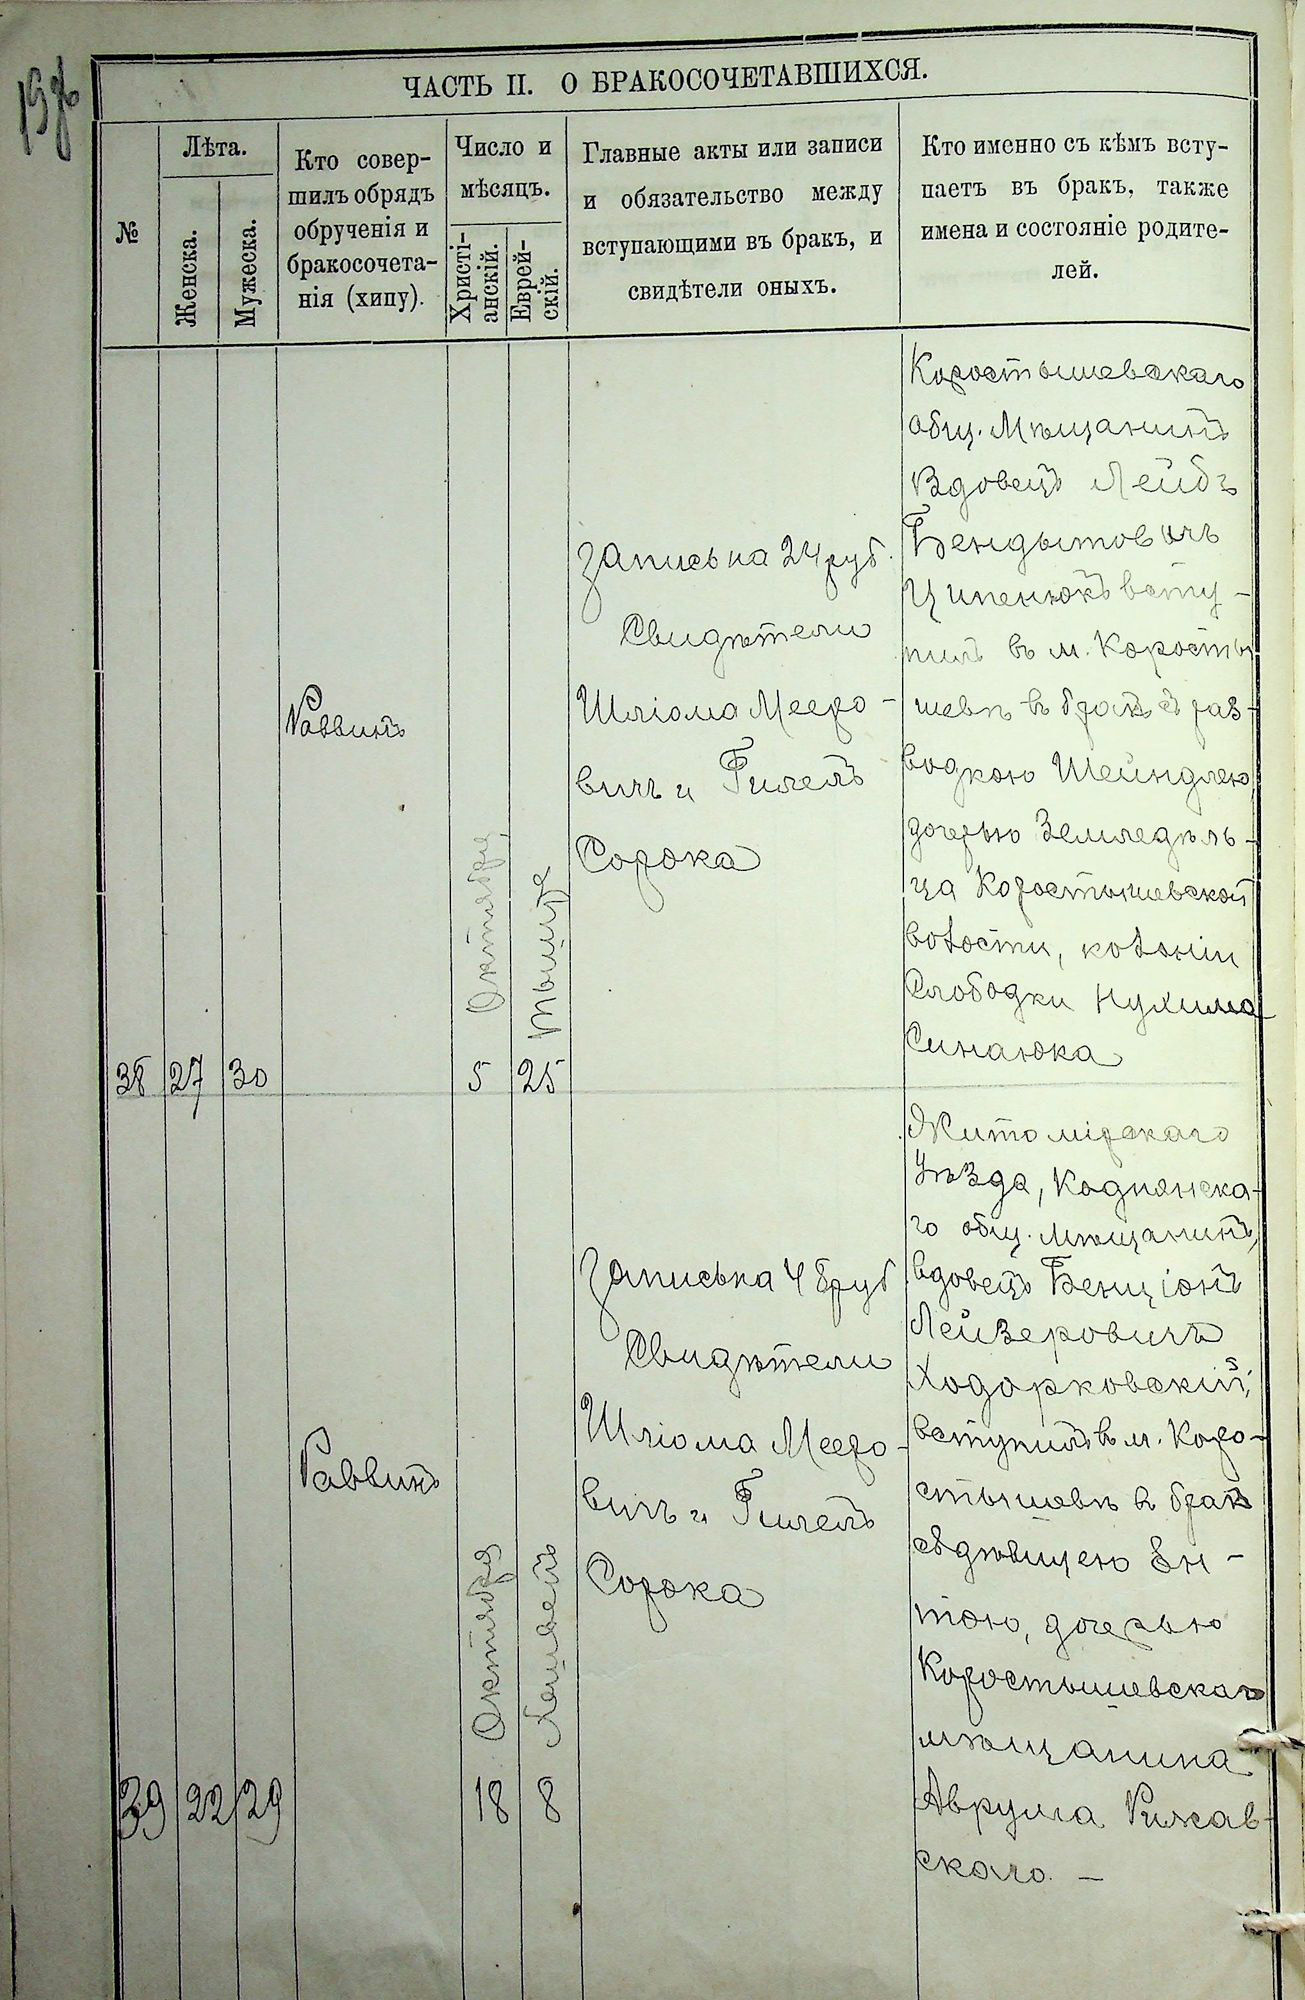 ЧАСТЬ II. О БРАКОСОЧЕТАВШИХСЯ.
№
Лѣта.
Женска.
Мужеска.
Кто совер-
шилъ обрядъ
обрученія и
бракосочета-
нія (хипу).
Число и
мѣсяцъ.
Христі-
анскій.
Еврей-
скій.
Главные акты или записи
и обязательство между
вступающими въ бракъ, и
свидѣтели оныхъ.
Кто именно съ кѣмъ всту-
паетъ въ бракъ, также
имена и состояніе родите-
лей.
38
27
30
Раввинъ
Октября
5
Тышре
25
Запись на 24 руб.
Свидѣтели
Шліома Мееро-
вичъ и Гилелъ
Сорока
Коростышевскаго
общ. Мѣщанинъ
Вдовецъ Лейбъ
Бендытовичъ
Ципенюкъ всту-
пилъ въ м. Коросты
шевѣ въ бракъ съ раз-
водкою Шейндлею,
дочерью Земледѣль-
ца Коростышевской
волости, колоніи
Слободки Нухима
Синаюка
39
22
29
Раввинъ
Октября
18
Хешвенъ
8
Запись на 48 руб
Свидѣтели
Шліома Мееро-
вичъ и Гилелъ
Сорока
Житомірскаго
Уѣзда, Коднянска-
го общ. мѣщанинъ,
вдовецъ Бенціонъ
Лейзеровичъ
Ходорковскій,
вступилъ въ м. Коро-
стышевѣ въ бракъ
съ дѣвицею Ен-
тою, дочерью
Коростышевскаго
мѣщанина
Аврума Рижав-
скаго. —